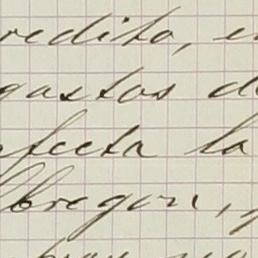 redito, e
gastos d
fecta la
Obregon,